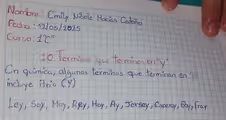 Nombre: Emily Nikole Macías Cedeño
Fecha: 12/05/2025
Curso: 1"C"
10 Terminos que terminen en "y"
En química, algunos terminos que terminan en
incluye Brio (Y)
Ley, Soy, Hoy, Rey, Hay, Ay, Jersey, Convoy, Boy, Fray.